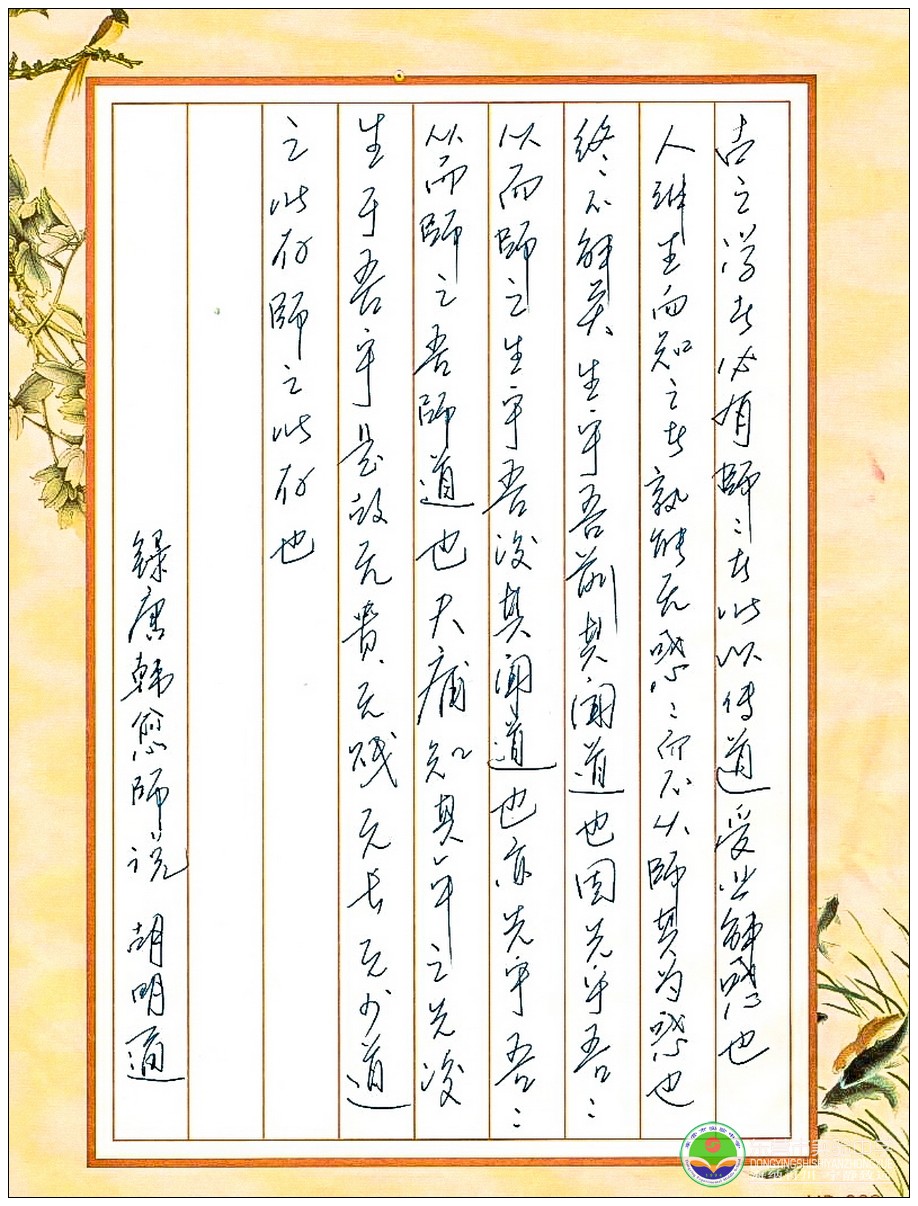 古之学者必有師〻者所以传道受业解惑也
人非生而知之者孰能无惑〻而不从師其为惑也
终〻不解矣生乎吾前其闻道也固先乎吾〻
从而師之生乎吾後其闻道也亦先乎吾〻
从而師之吾師道也夫庸知其年之先後
生于吾乎是故无贵无贱无长无少道
之所存師之所存也
録唐韩愈師说 胡明道